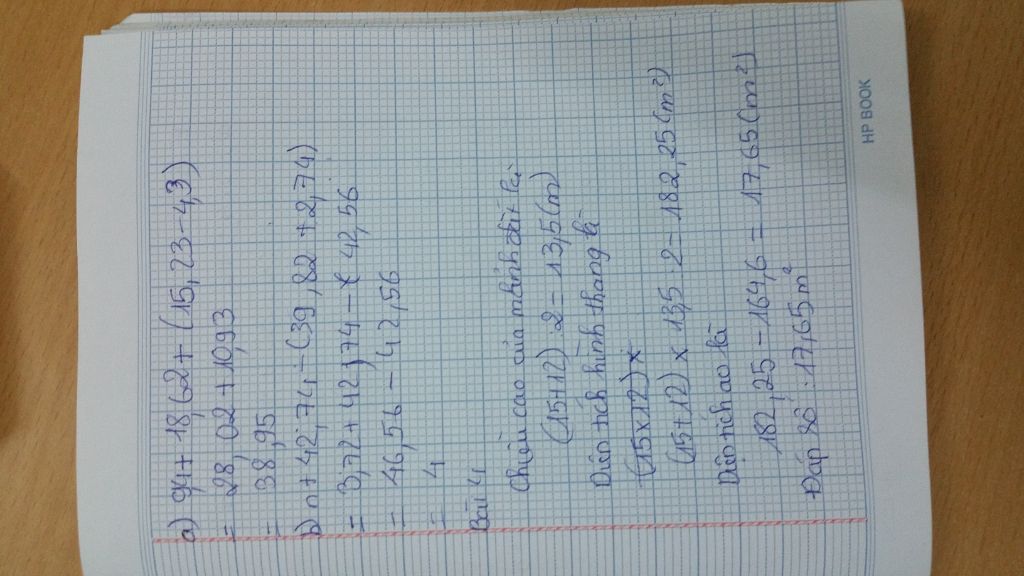 a) 9,4+ 18,62+ (15,23-4,3)
= 28,02 + 10,93
= 38,95
b) n+ 42,74 - (39,82 +2,74)
= 3,72+ 42,74 - ( 42,56
= 46,56 - 42,56
= 4
Bài 4
Chiều cao của mảnh đất là
(15+12) 2 = 13,5 (m)
Diện tích hình thang là
(15x12) x
(15+12) x 13,5 : 2 = 182,25 (m²)
Diện tích ao là
182,25 - 164,6 = 17,65 (m²)
Đáp số : 17,65 m²
HP BOOK